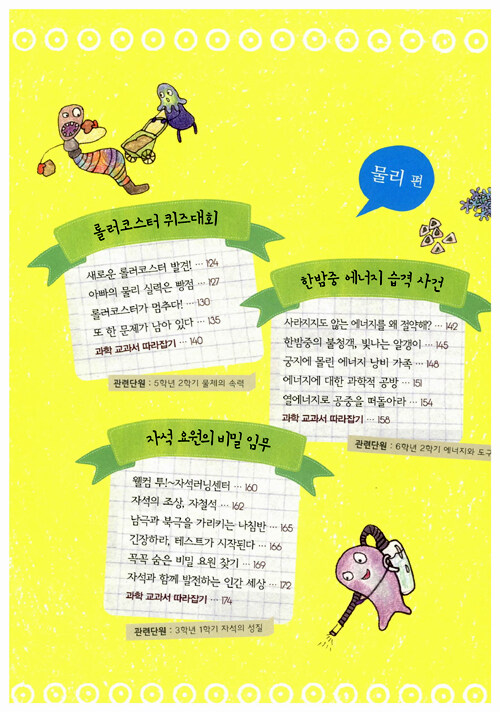 물리 편
롤러코스터 퀴즈대회
새로운 롤러코스터 발견! … 124
아빠의 물리 실력은 빵점 … 127
롤러코스터가 멈추다! … 130
또 한 문제가 남아 있다 … 135
과학 교과서 따라잡기 … 140
관련단원 : 5학년 2학기 물체의 속력
한밤중 에너지 습격 사건
사라지지도 않는 에너지를 왜 절약해? … 142
한밤중의 불청객, 빛나는 알갱이 … 145
궁지에 몰린 에너지 낭비 가족 … 148
에너지에 대한 과학적 공방 … 151
열에너지로 공중을 떠돌아라 … 154
과학 교과서 따라잡기 … 158
관련단원 : 6학년 2학기 에너지와 도구
자석 요원의 비밀 임무
웰컴 투!~자석러닝센터 … 160
자석의 조상, 자철석 … 162
남극과 북극을 가리키는 나침반 … 165
긴장하라, 테스트가 시작된다 … 166
꼭꼭 숨은 비밀 요원 찾기 … 169
자석과 함께 발전하는 인간 세상 … 172
과학 교과서 따라잡기 … 174
관련단원 : 3학년 1학기 자석의 성질